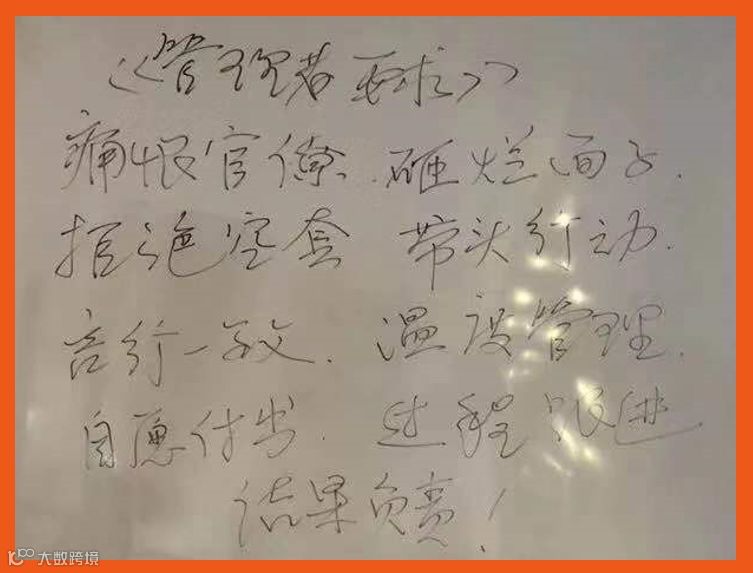 《管理者要求》
痛恨官僚.砸烂面子.
拒绝空套 带头行动.
言行一致.温度管理.
自愿付出.过程跟进
结果负责!
大数跨境